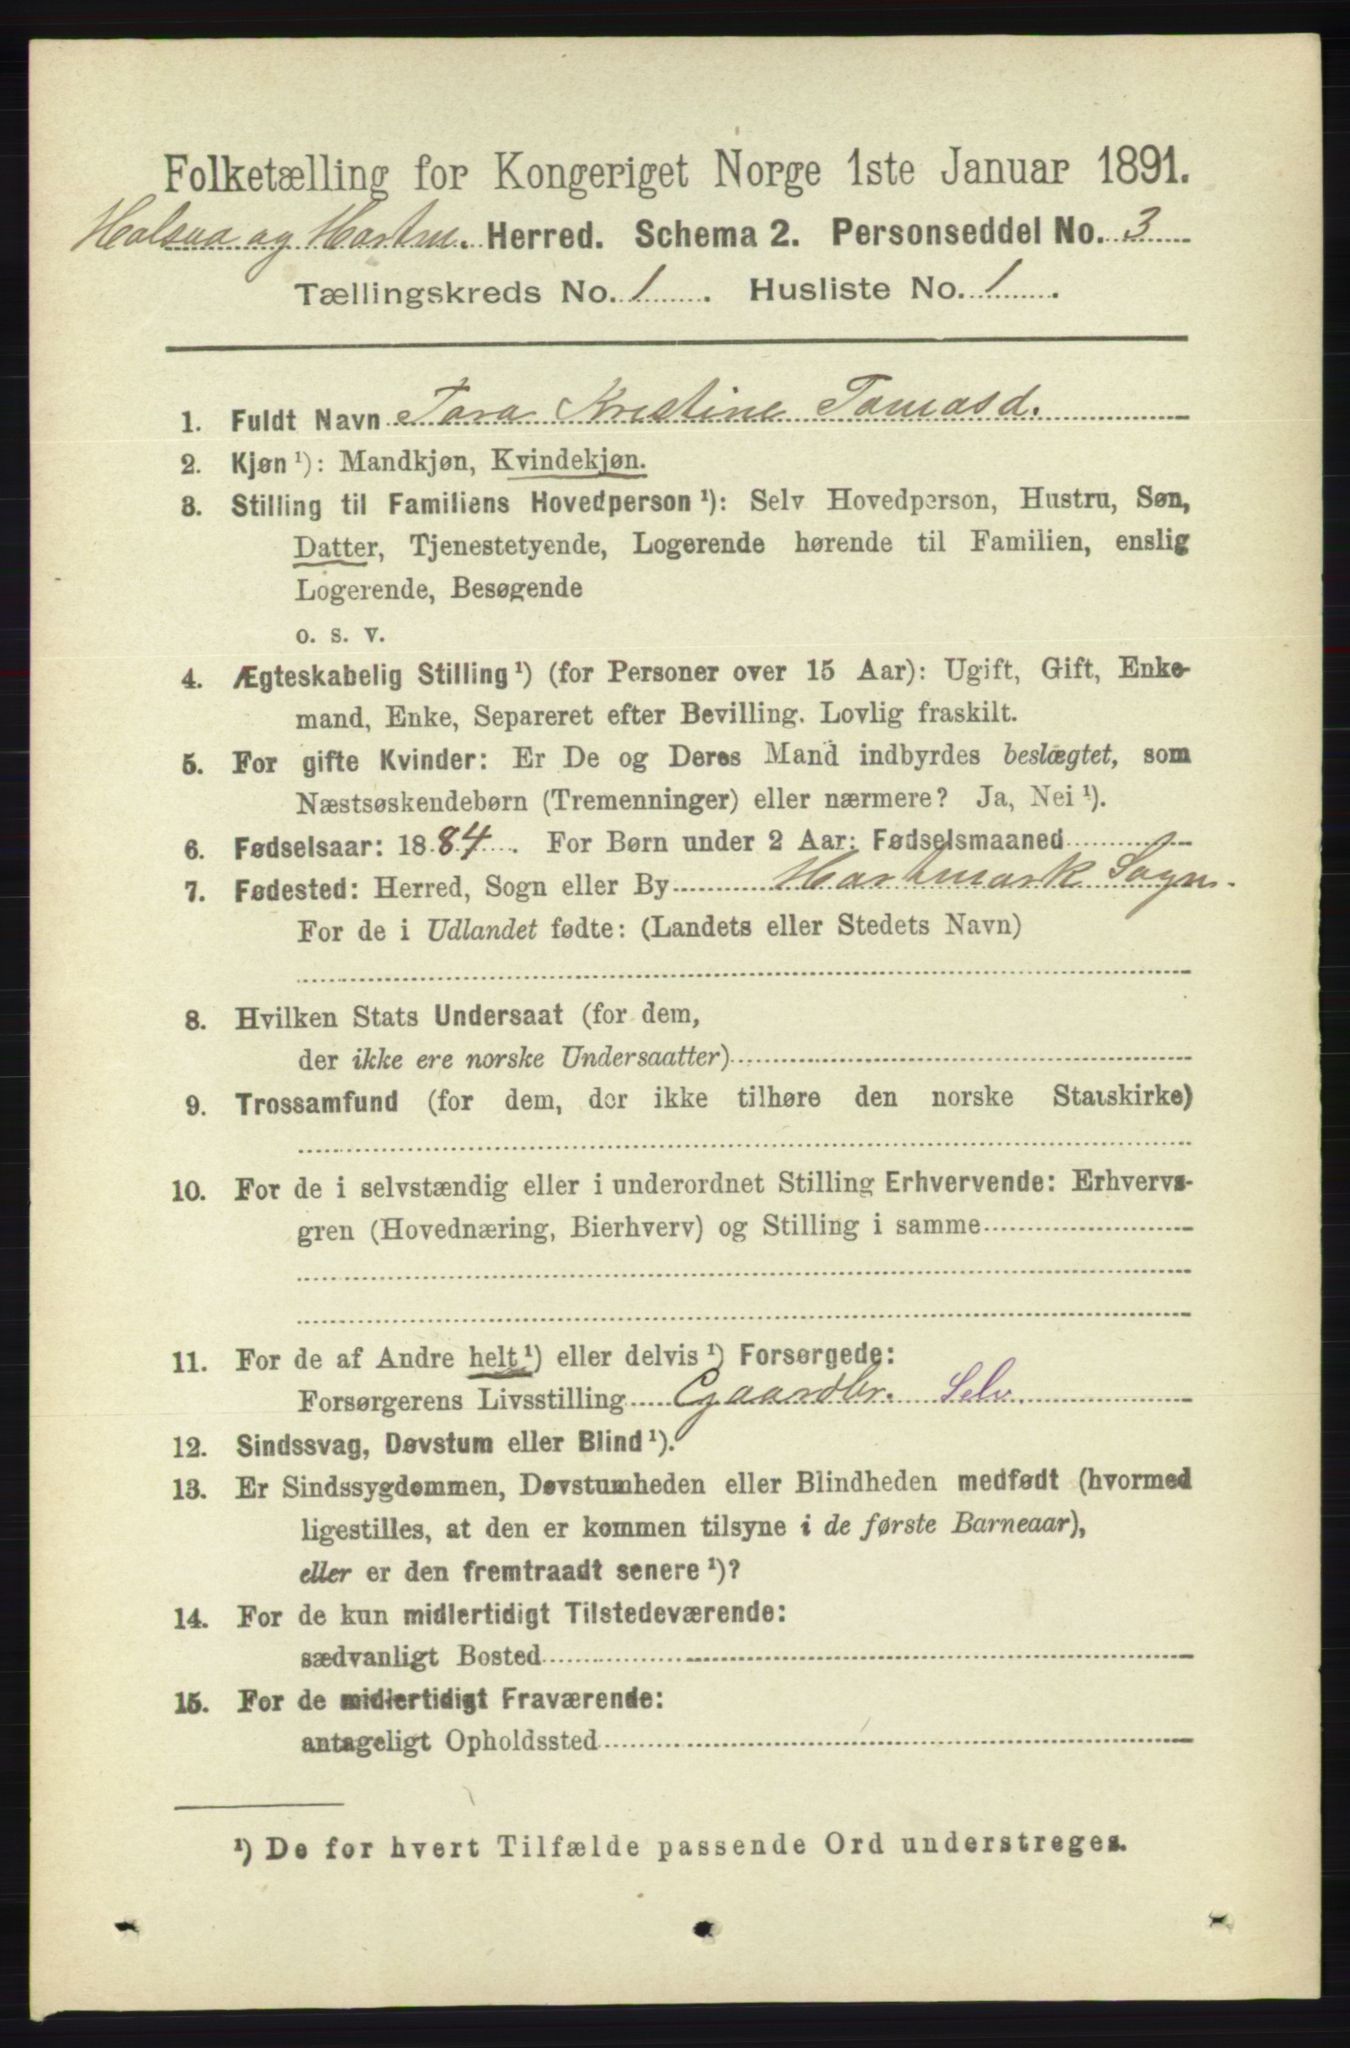 Folketælling for Kongeriget Norge 1ste Januar 1891.
Halsaa og Hartm. Herred. Schema 2. Personseddel No. 3
Tællingskreds No. 1. Husliste No. 1.
1. Fuldt Navn Tara Kristine Tomasd.
2. Kjøn ¹): Mandkjøn, Kvindekjøn.
3. Stilling til Familiens Hovedperson ¹): Selv Hovedperson, Hustru, Søn,
Datter, Tjenestetyende, Logerende hørende til Familien, enslig
Logerende, Besøgende
o. s. v.
4. Ægteskabelig Stilling ¹) (for Personer over 15 Aar): Ugift, Gift, Enke-
mand, Enke, Separeret efter Bevilling. Lovlig fraskilt.
5. For gifte Kvinder: Er De og Deres Mand indbyrdes beslægtet, som
Næstsøskendebørn (Tremenninger) eller nærmere? Ja, Nei ¹).
6. Fødselsaar: 1884. For Børn under 2 Aar: Fødselsmaaned
7. Fødested: Herred, Sogn eller By Hartmark Sogn.
For de i Udlandet fødte: (Landets eller Stedets Navn)
8. Hvilken Stats Undersaat (for dem,
der ikke ere norske Undersaatter)
9. Trossamfund (for dem, der ikke tilhøre den norske Statskirke)
10. For de i selvstændig eller i underordnet Stilling Erhvervende: Erhvervs-
gren (Hovednæring, Bierhverv) og Stilling i samme
11. For de af Andre helt ¹) eller delvis ¹) Forsørgede:
Forsørgerens Livsstilling Gaardbr. Selv.
12. Sindssvag, Døvstum eller Blind ¹).
13. Er Sindssygdommen, Døvstumheden eller Blindheden medfødt (hvormed
ligestilles, at den er kommen tilsyne i de første Barneaar),
eller er den fremtraadt senere ¹)?
14. For de kun midlertidigt Tilstedeværende:
sædvanligt Bosted
15. For de midlertidigt Fraværende:
antageligt Opholdssted
¹) De for hvert Tilfælde passende Ord understreges.